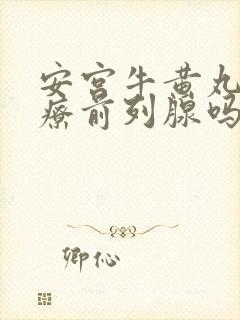 安宫牛黄丸
疗前列腺吗
卿伈